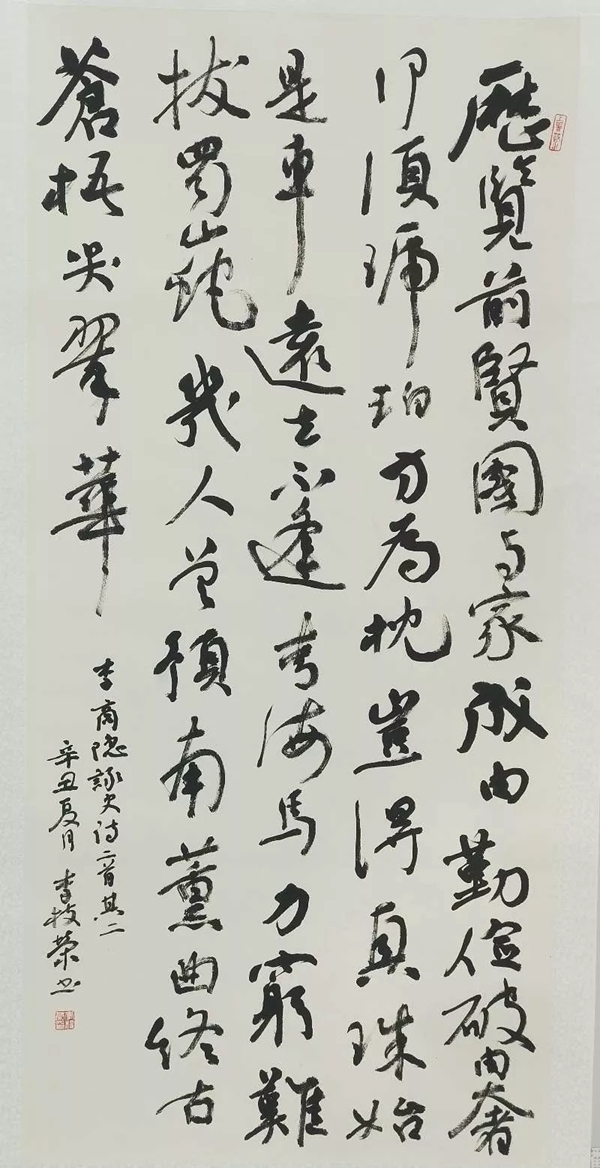 歷覽前賢國与家成由勤儉破由奢
何須琥珀方為枕豈得真珠始
是車遠去不逢青海馬力窮難
拔蜀山蛇幾人曾預南薰曲終古
蒼梧哭翠華
李商隐詠史诗二首其二
辛丑夏月 李技荣书